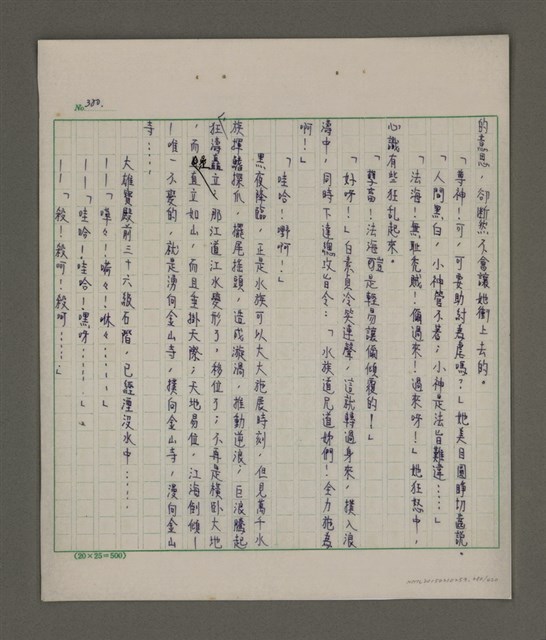 No 380.
的意思，卻斷然不會讓她衝上去的。
「尊神！可，可要助紂為虐嗎？」她美目圓睜切齒說。
「人間黑白，小神管不著；小神是法旨難違……」
「法海！無恥禿賊！偏過來！過來呀！」她狂怒中，
心識有些狂亂起來。
「孽畜！法海豈是輕易讓偏傾覆的！」
「好呀！」白素貞冷笑連聲，這就轉過身來，撲入浪
濤中，同時下達總攻旨令：「水族道兄道姊們！全力施為
啊！」
「哇哈！嘢啊！」
黑夜降臨，正是水族可以大大施展時刻，但見萬千水
族揮鰭探爪，擺尾搖頭，造成漩渦，推動逆浪；巨浪騰起
狂濤矗立，那江道江水變形了，移位了；不再是橫臥大地
，而是直立如山，而且垂掛天際；天地易位，江海倒傾！
！唯一不變的，就是湧向金山寺，撲向金山寺，漫向金山
寺……
大雄寶殿前三十六級石階，已經湮沒水中……
——「嘩々！嗬々！咻々……」
——「哇哈！哇哈！嘿呀……」
——「殺！殺呵！殺呵……」
(20×25=500)